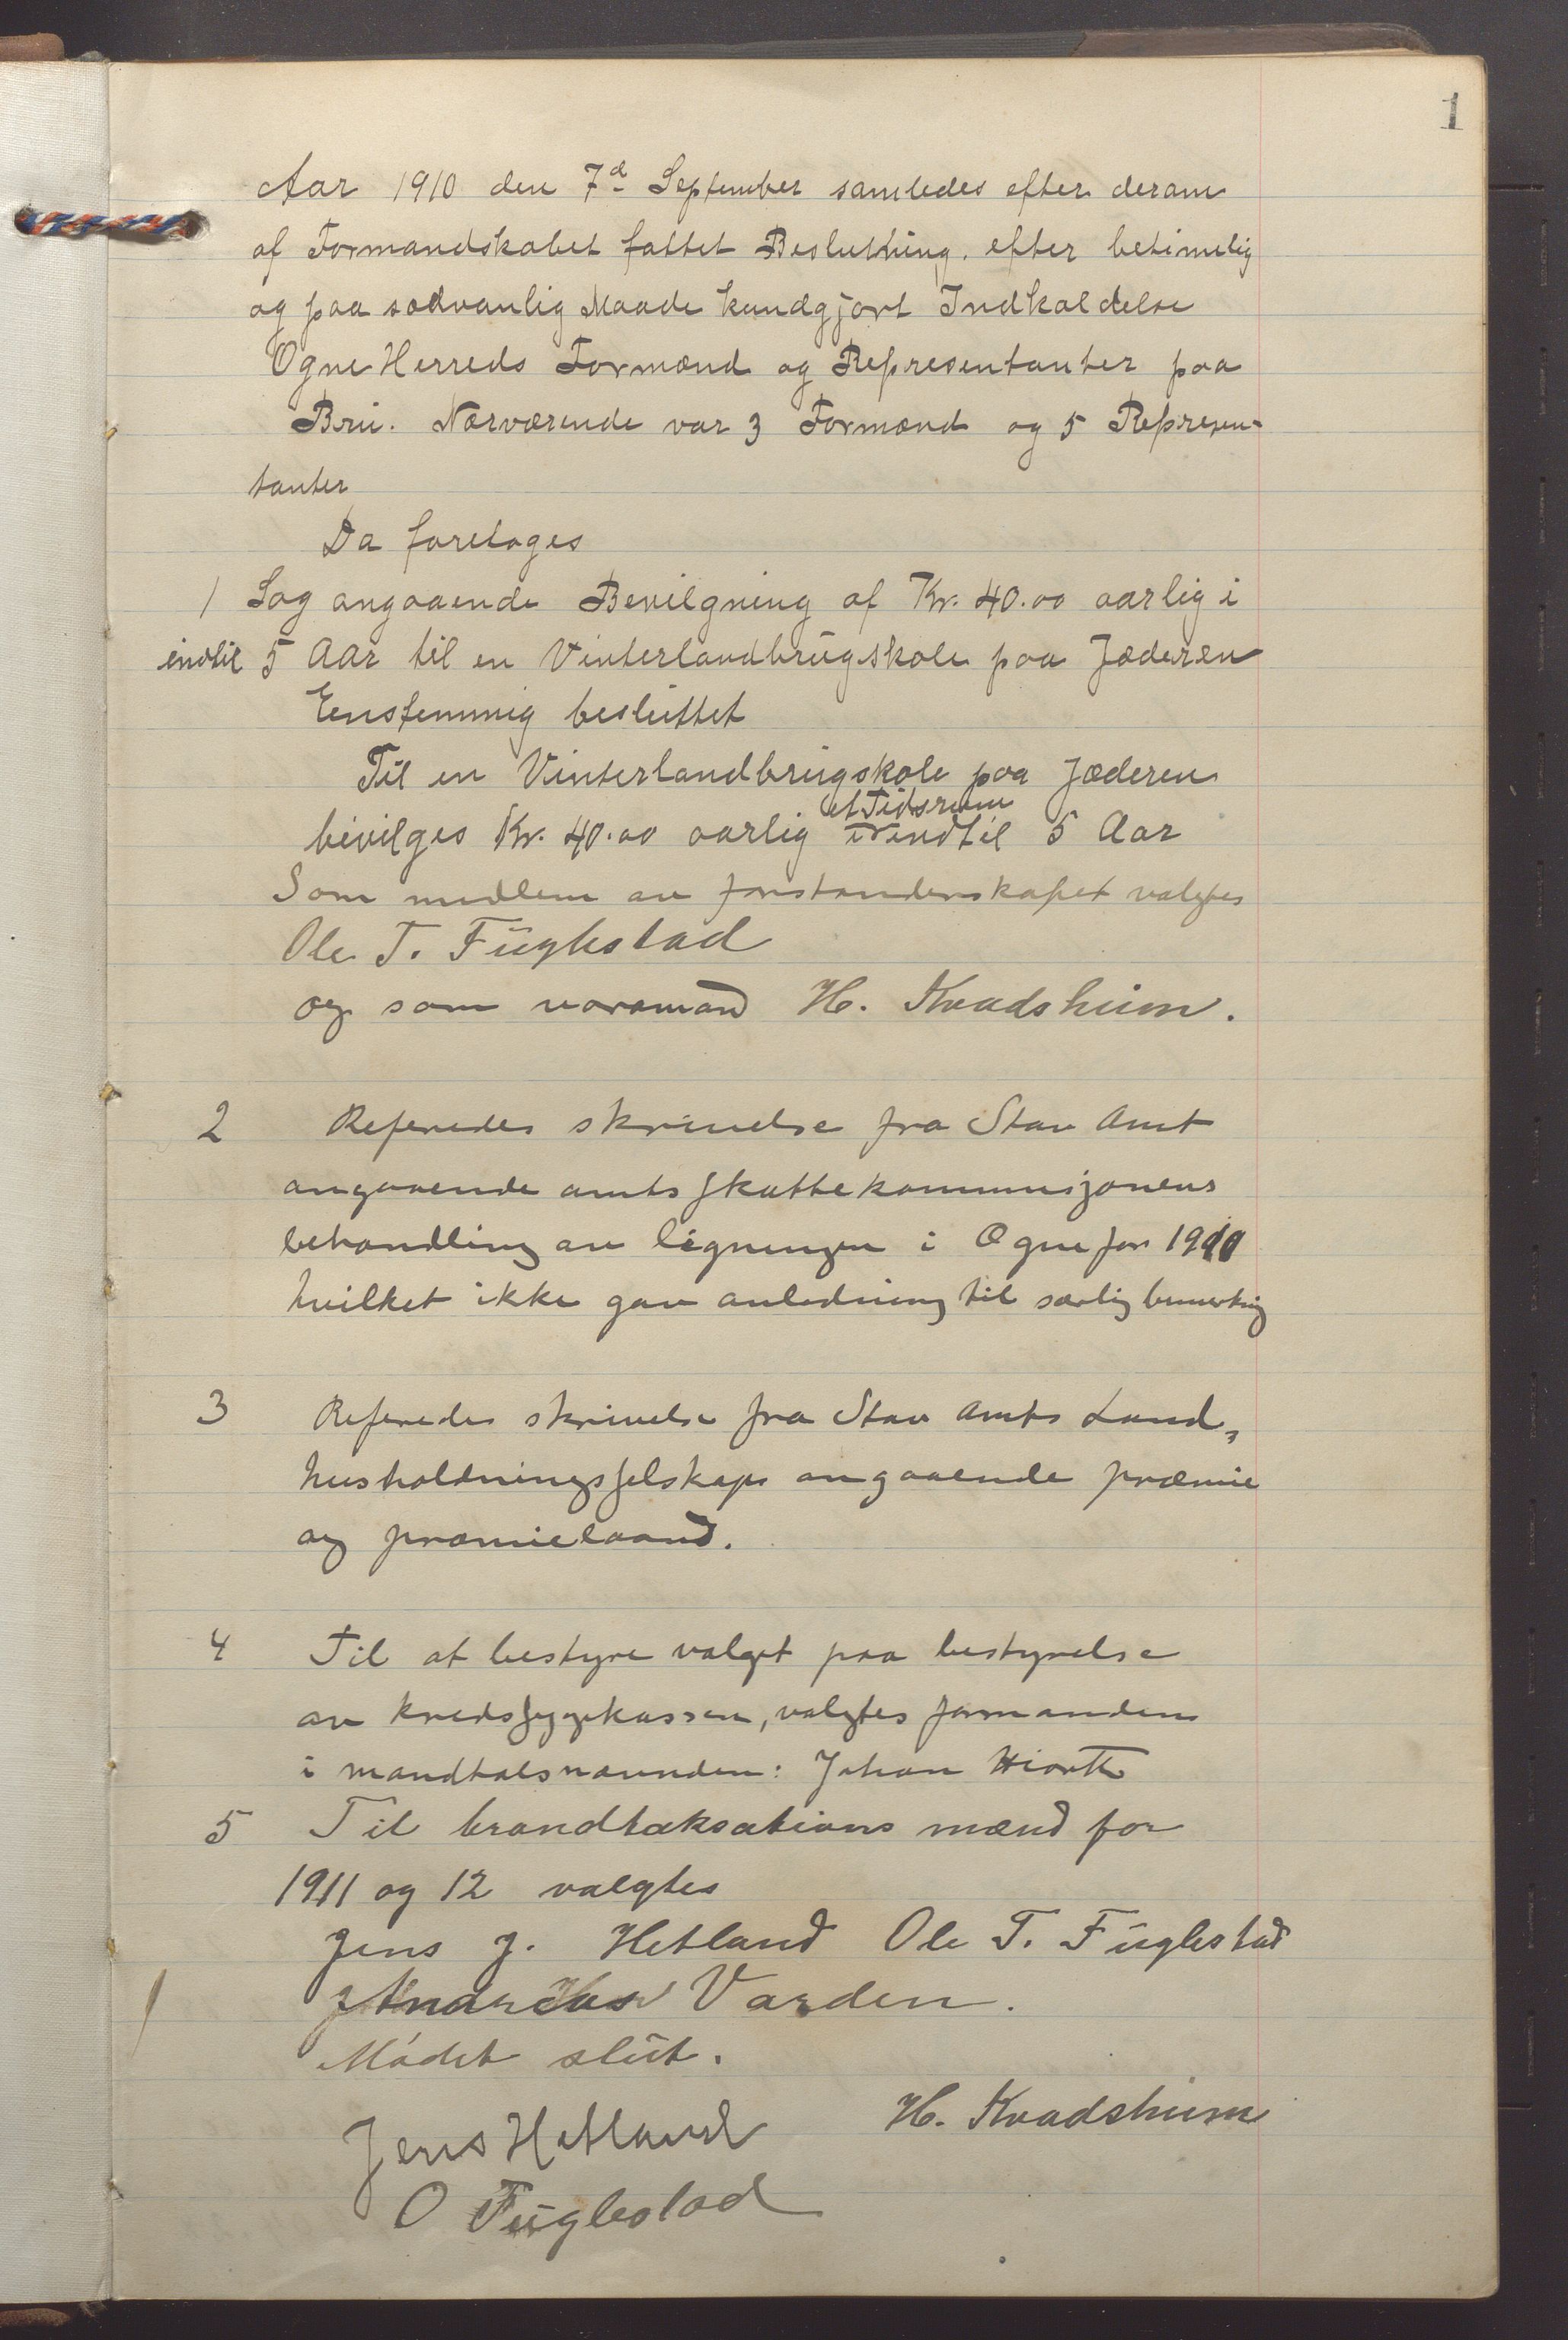 1
Aar 1910 den 7d September samledes efter derom
af Formandskabet fattet Beslutning, efter betimelig
og paa sædvanlig Maade kundgjort Indkaldelse
Ogne Herreds Formænd og Representanter paa
Bru. Nærværende var 3 Formænd og 5 Represen-
tanter
Da foretoges
1 Sag angaaende Bevilgning af Kr. 40.00 aarlig i
indtil 5 Aar til en Vinterlandbrugskole paa Jæderen
Eenstemmig besluttet
Til en Vinterlandbrugskole paa Jæderen
et Tidsrum
bevilges Kr. 40.00 aarlig i indtil 5 Aar
Som medlem av forstanderskapet valgtes
Ole T. Fuglestad
og som varamand H. Kvadsheim.
2 Referedes skrivelse fra Stav Amt
angaaende amtsskattekommisjonens
behandling av ligningen i Ogne for 1910
hvilket ikke gav anledning til særlig bemerkning
3 Referedes skrivelse fra Stav Amts Land-
husholdningsselskap angaaende præmie
og præmielaand.
4 Til at bestyre valget paa bestyrelse
av kredssygekassen, valgtes formanden
i mandtalsnævnden: Johan Hiorth
5 Til brandtaksations mænd for
1911 og 12 valgtes
Jens J. Hetland Ole T. Fuglestad
Andreas Varden.
Mødet slut.
H. Kvadsheim
Jens Hetland
O Fuglestad